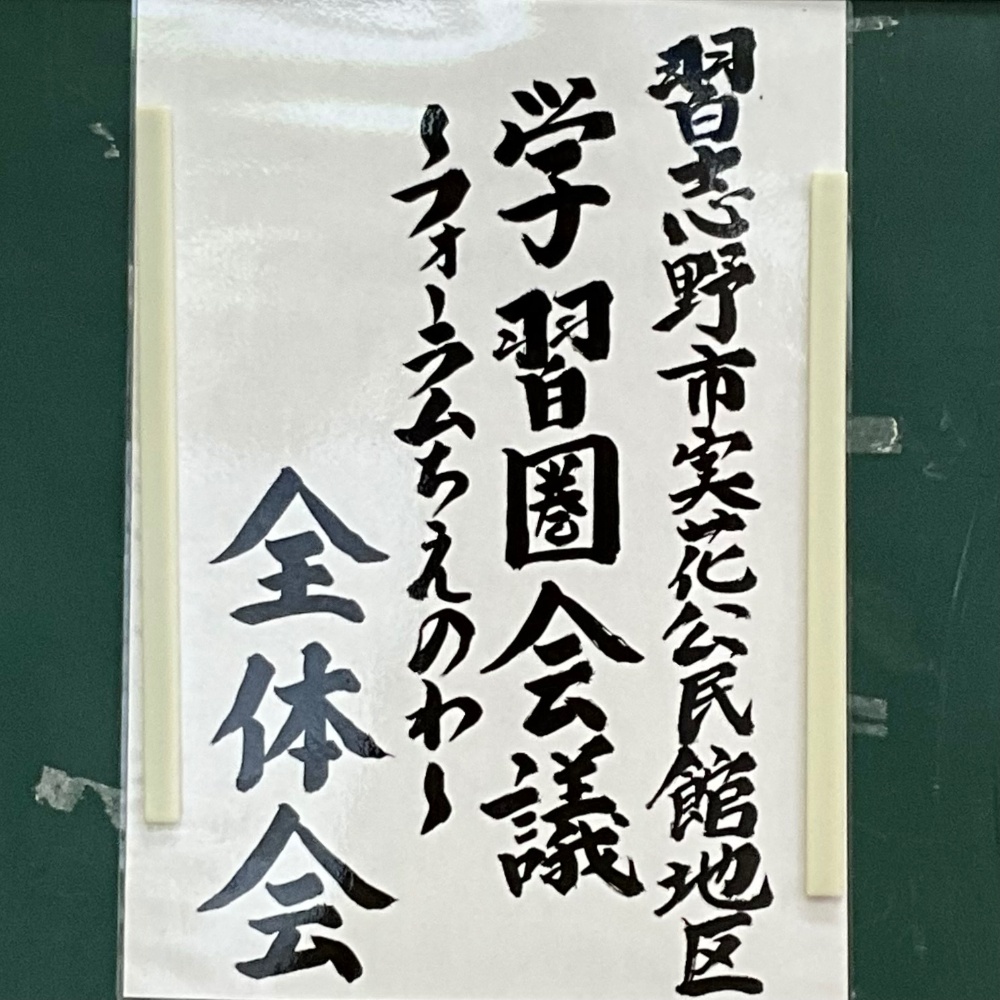 習志野市実花公民館地区
学習圏会議
～フォーラムちえのわ～
全体会